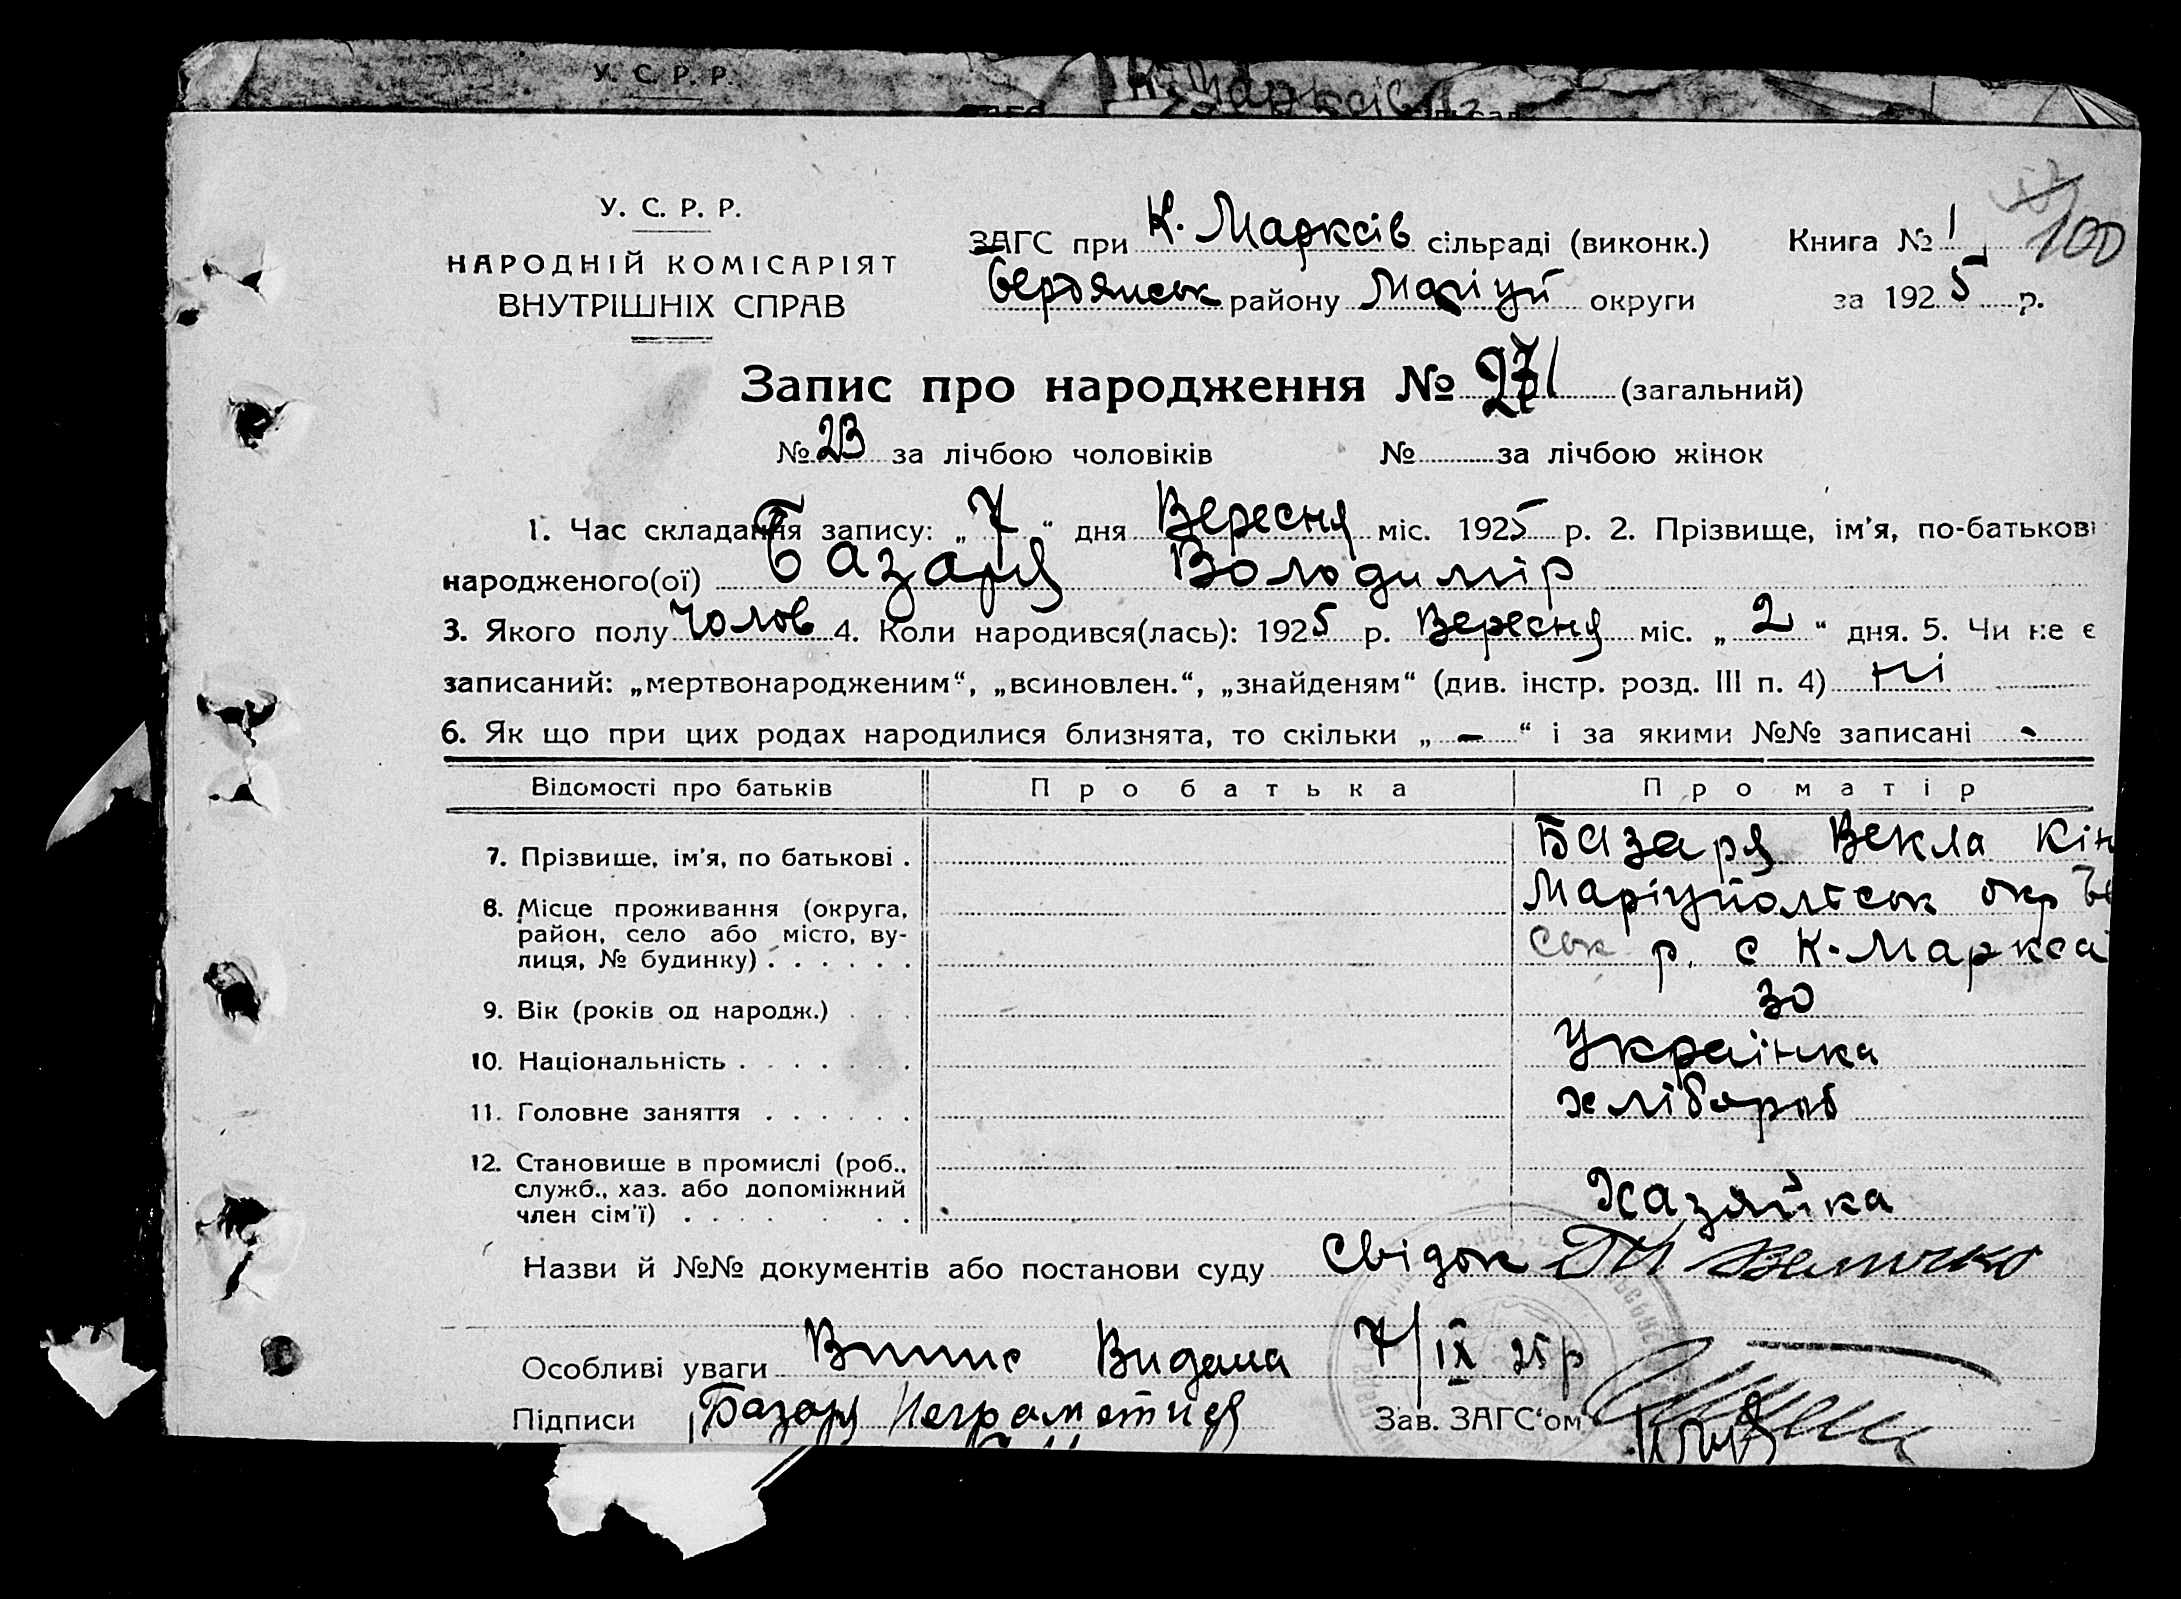 У. С. Р. Р.
К. Марксів
У. С. Р. Р.
НАРОДНІЙ КОМІСАРІЯТ
ВНУТРІШНІХ СПРАВ
ЗАГС при К. Марксів сільраді (виконк.) Книга № 1 100
Бердянськ району Маріуп округи за 1925 р.
Запис про народження № 271 (загальний)
№ 23 за лічбою чоловіків № за лічбою жінок
1. Час складання запису: „ 7 “ дня Вересня міс. 1925 р. 2. Прізвище, ім'я, по-батькові
народженого(ої) Базаря Володимір
3. Якого полу Чолов 4. Коли народився(лась): 1925 р. Вересня міс. „ 2 “ дня. 5. Чи не є
записаний: „мертвонародженим“, „всиновлен.“, „знайденям“ (див. інстр. розд. III п. 4) ні
6. Як що при цих родах народилися близнята, то скільки „ – “ і за якими №№ записані -
Відомості про батьків Про батька Про матір
7. Прізвище, ім'я, по батькові . Базаря Векла Кін
8. Місце проживання (округа, Маріупольськ окр Бе
район, село або місто, ву-
лиця, № будинку) . . . . . . ськ р. с К-Маркса
9. Вік (років од народж.) . . . 30
10. Національність . . . . . . . Українка
11. Головне заняття . . . . . . хлібороб
12. Становище в промислі (роб.,
служб., хаз. або допоміжний
член сім'ї) . . . . . . . Хазяйка
Назви й №№ документів або постанови суду Свідок Величко
Особливі уваги Випис Видана 7/IX 25 р
Підписи Базаря Неграмотная Зав. ЗАГС'ом